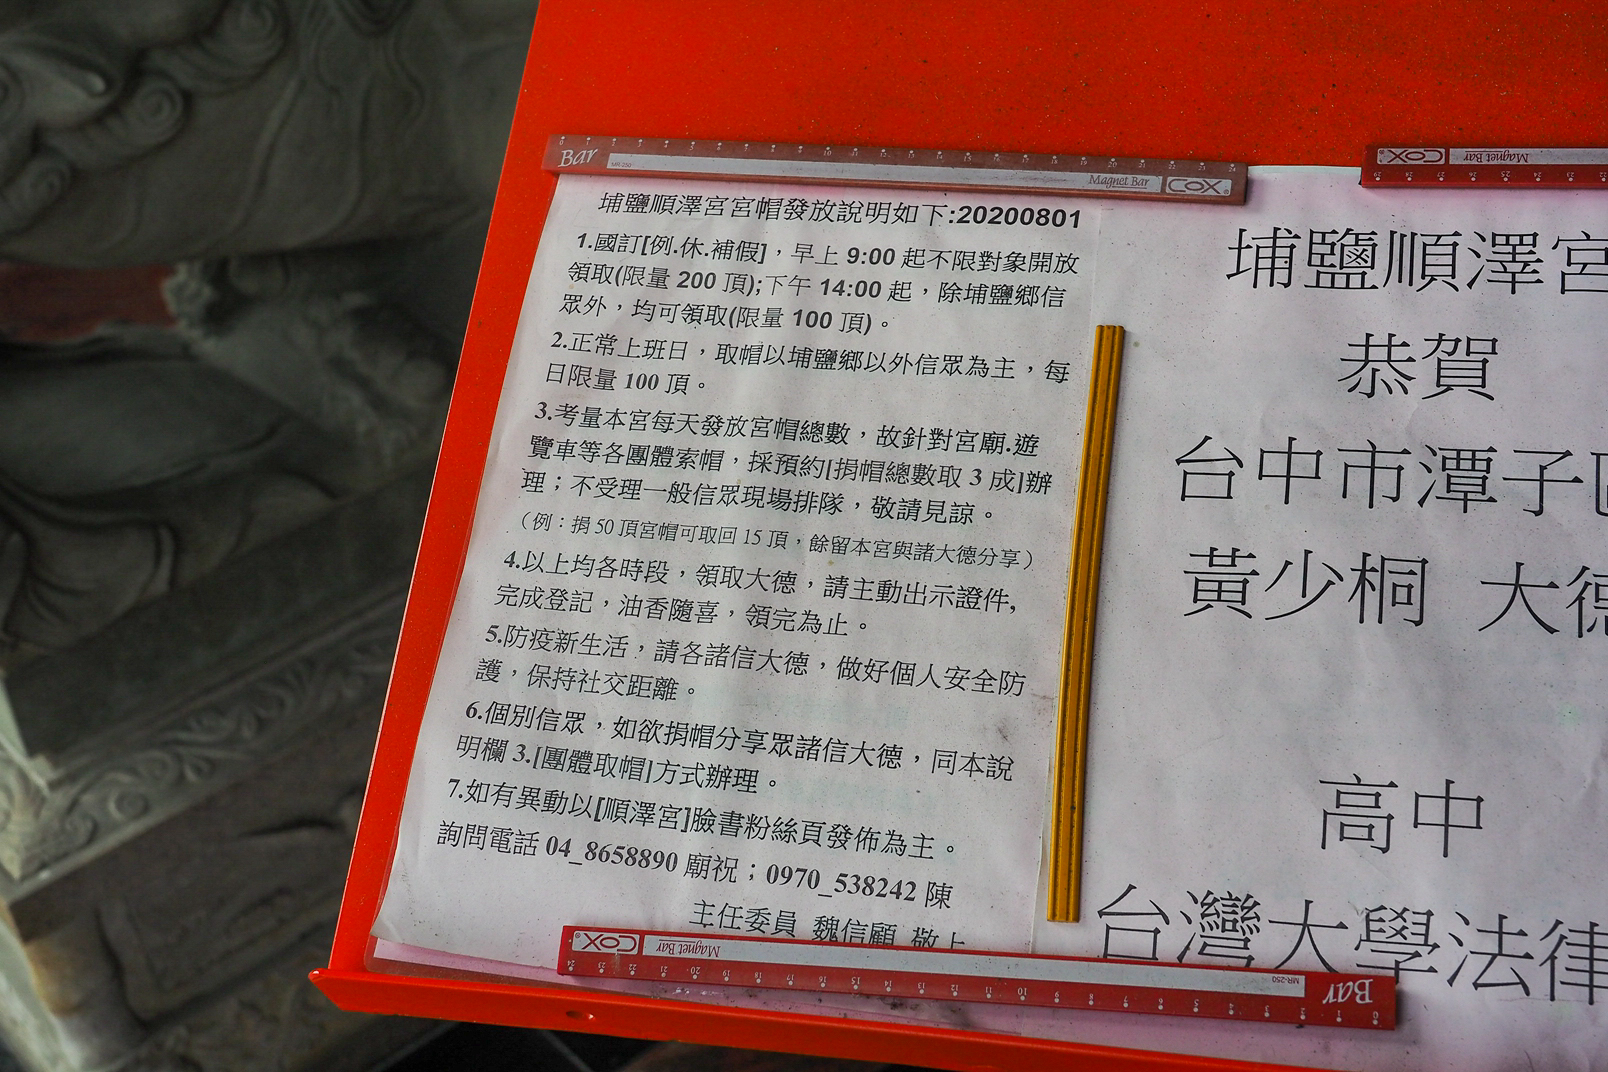 Bar
Magnet Bar COX
埔鹽順澤宮宮帽發放說明如下:20200801
1.國訂[例.休.補假]，早上 9:00 起不限對象開放
領取(限量 200 頂);下午 14:00 起，除埔鹽鄉信
眾外，均可領取(限量 100 頂)。
2.正常上班日，取帽以埔鹽鄉以外信眾為主，每
日限量 100 頂。
3.考量本宮每天發放宮帽總數，故針對宮廟.遊
覽車等各團體索帽，採預約[捐帽總數取 3 成]辦
理；不受理一般信眾現場排隊，敬請見諒。
（例：捐 50 頂宮帽可取回 15 頂，餘留本宮與諸大德分享）
4.以上均各時段，領取大德，請主動出示證件,
完成登記，油香隨喜，領完為止。
5.防疫新生活，請各諸信大德，做好個人安全防
護，保持社交距離。
6.個別信眾，如欲捐帽分享眾諸信大德，同本說
明欄 3.[團體取帽]方式辦理。
7.如有異動以[順澤宮]臉書粉絲頁發佈為主。
詢問電話 04_8658890 廟祝；0970_538242 陳
主任委員 魏信顧 敬上
COX Magnet Bar
MR-250 Bar
COX Magnet Bar
埔鹽順澤宮
恭賀
台中市潭子區
黃少桐 大德
高中
台灣大學法律